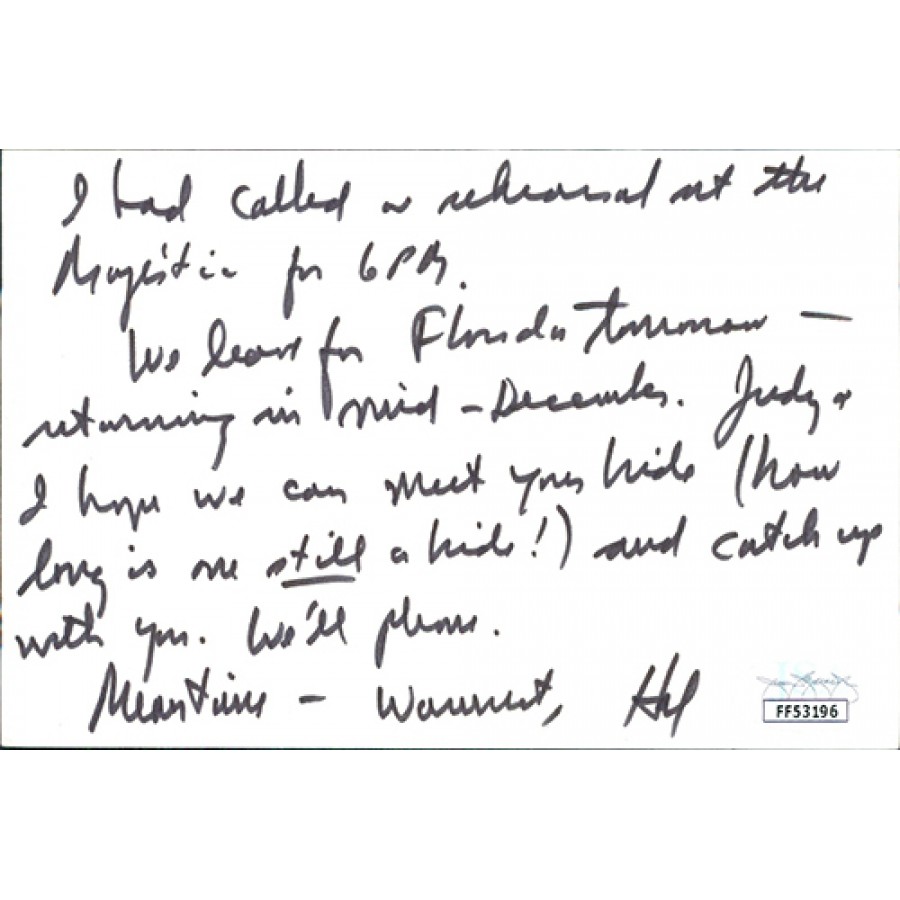 I had called a rehearsal at the
Majestic for 6 PM.
We leave for Florida tomorrow —
returning in mid-December. Judy &
I hope we can meet your kids (how
long is one still a kid!) and catch up
with you. We'll phone.
Meantime - Warmest, Hal
FF53196